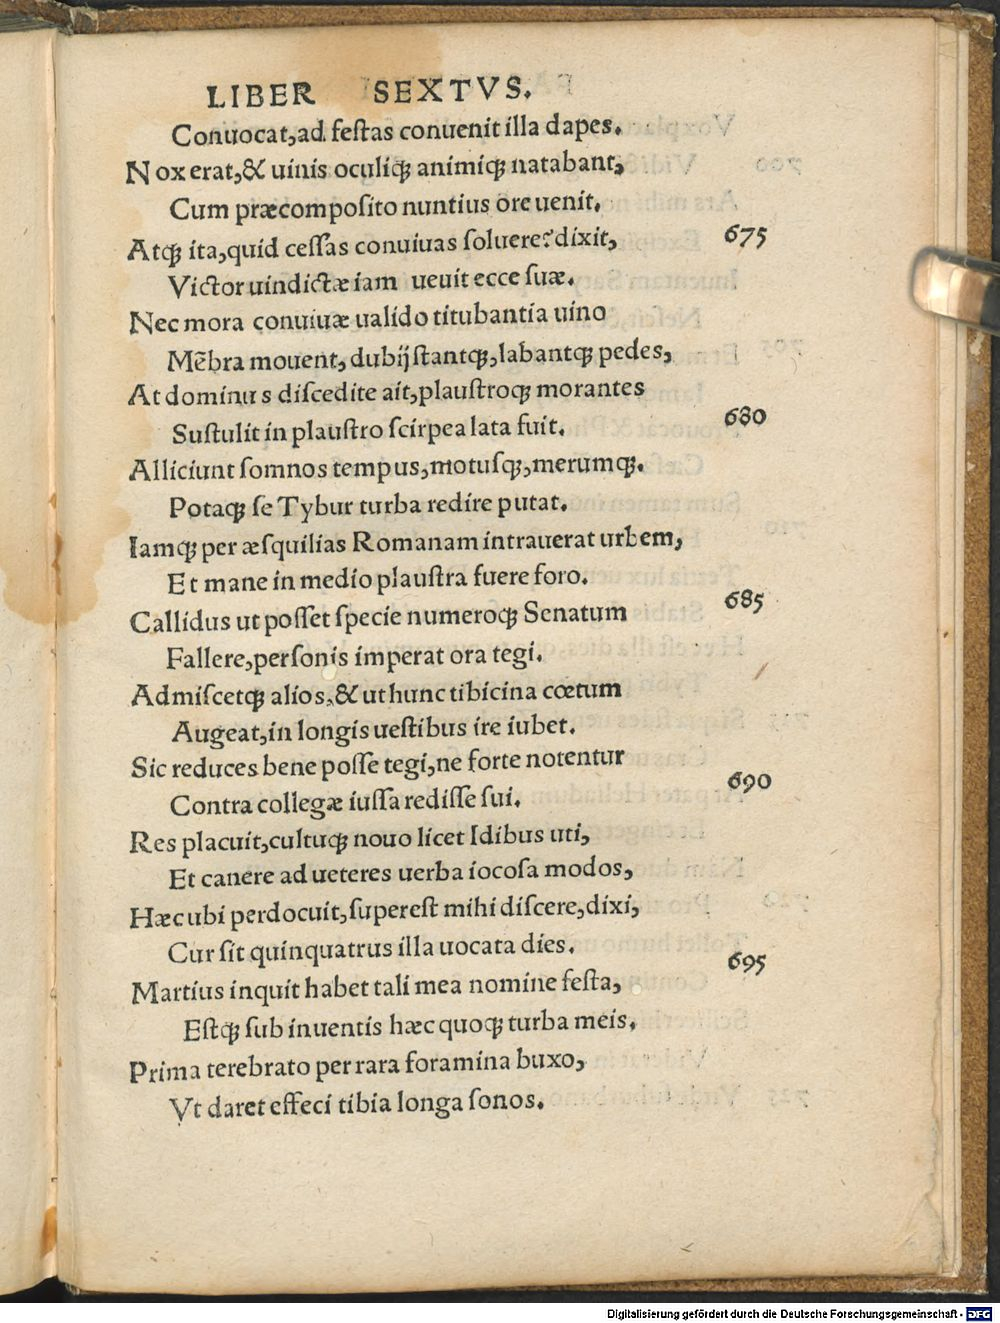 LIBER SEXTVS.
Conuocat,ad feſtas conuenit illa dapes.
Nox erat,& uinis oculiqꝫ animiqꝫ natabant,
Cum præcompoſito nuntius ore uenit.
Atqꝫ ita,quid ceſſas conuiuas ſoluere?dixit, 675
Victor uindictæ iam ueuit ecce ſuæ.
Nec mora conuiuæ ualido titubantia uino
Mēbra mouent,dubij ſtantqꝫ,labantqꝫ pedes,
At dominus diſcedite ait,plauſtroqꝫ morantes
Suſtulit in plauſtro ſcirpea lata fuit. 680
Alliciunt ſomnos tempus,motuſqꝫ,merumqꝫ.
Potaqꝫ ſe Tybur turba redire putat.
Iamqꝫ per æſquilias Romanam intrauerat urbem,
Et mane in medio plauſtra fuere foro.
Callidus ut poſſet ſpecie numeroqꝫ Senatum 685
Fallere,perſonis imperat ora tegi.
Admiſcetqꝫ alios,& ut hunc tibicina cœtum
Augeat,in longis ueſtibus ire iubet.
Sic reduces bene poſſe tegi,ne forte notentur
Contra collegæ iuſſa rediſſe ſui. 690
Res placuit,cultuqꝫ nouo licet Idibus uti,
Et canere ad ueteres uerba iocoſa modos,
Hæc ubi perdocuit,ſupereſt mihi diſcere,dixi,
Cur ſit quinquatrus illa uocata dies.
Martius inquit habet tali mea nomine feſta, 695
Eſtqꝫ ſub inuentis hæc quoqꝫ turba meis.
Prima terebrato per rara foramina buxo,
Vt daret effeci tibia longa ſonos.
Digitalisierung gefördert durch die Deutsche Forschungsgemeinschaft - DFG